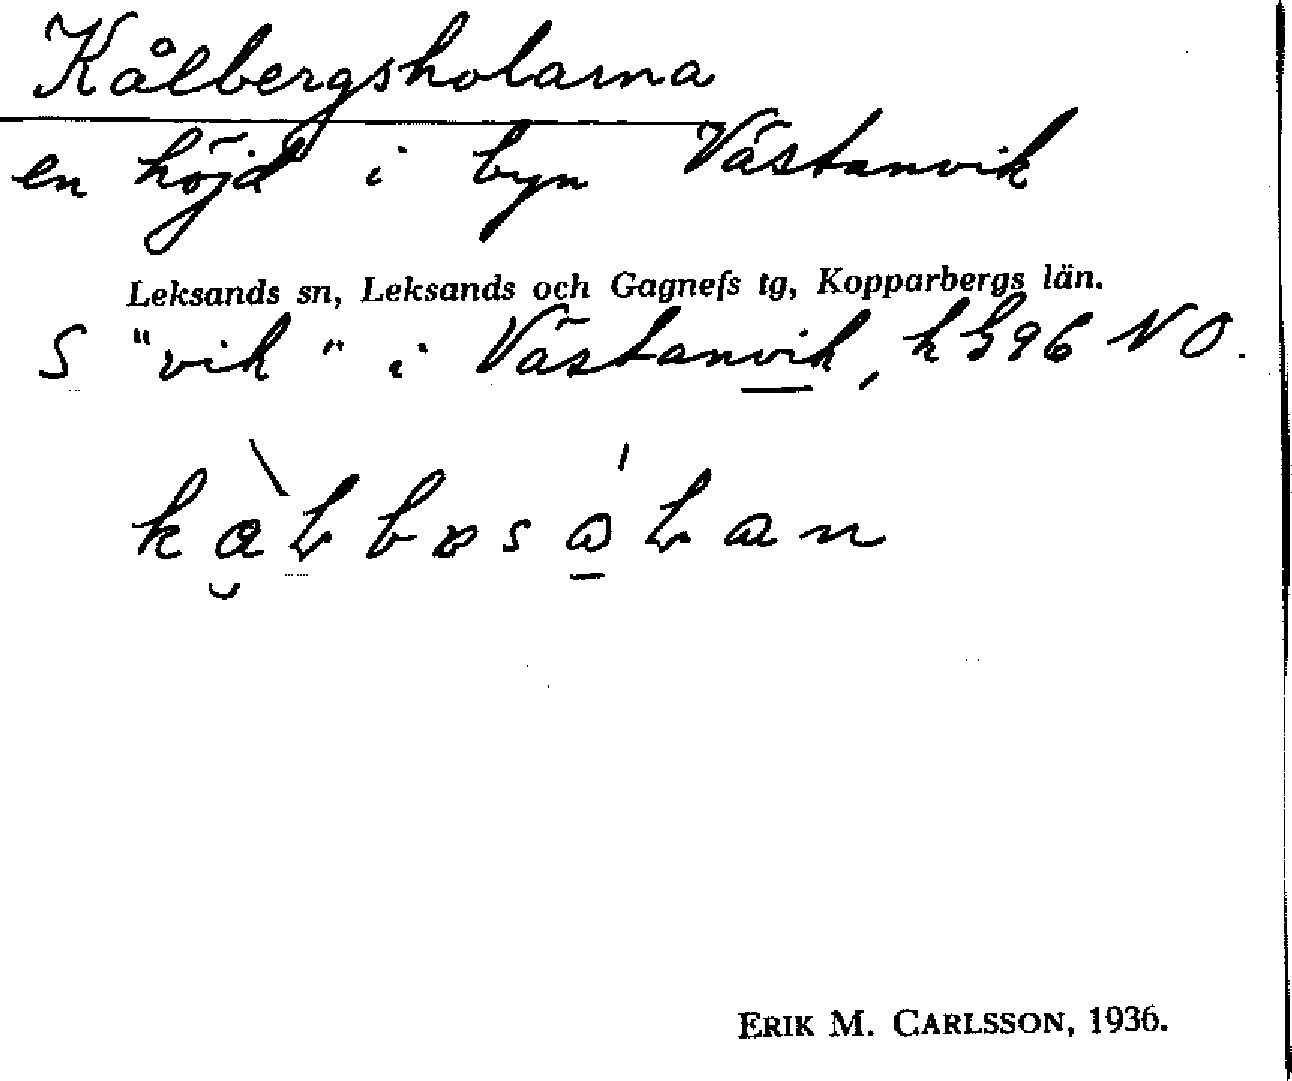 Kålbergsholarna
en höjd i byn Västanvik
Leksands sn, Leksands och Gagnefs tg, Kopparbergs län.
S "vik" i Västanvik, kh96 NO.
ERIK M. CARLSSON, 1936.